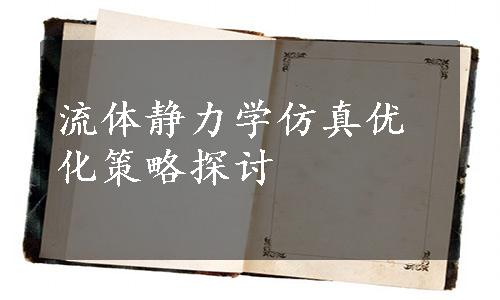 流体静力学仿真优
化策略探讨